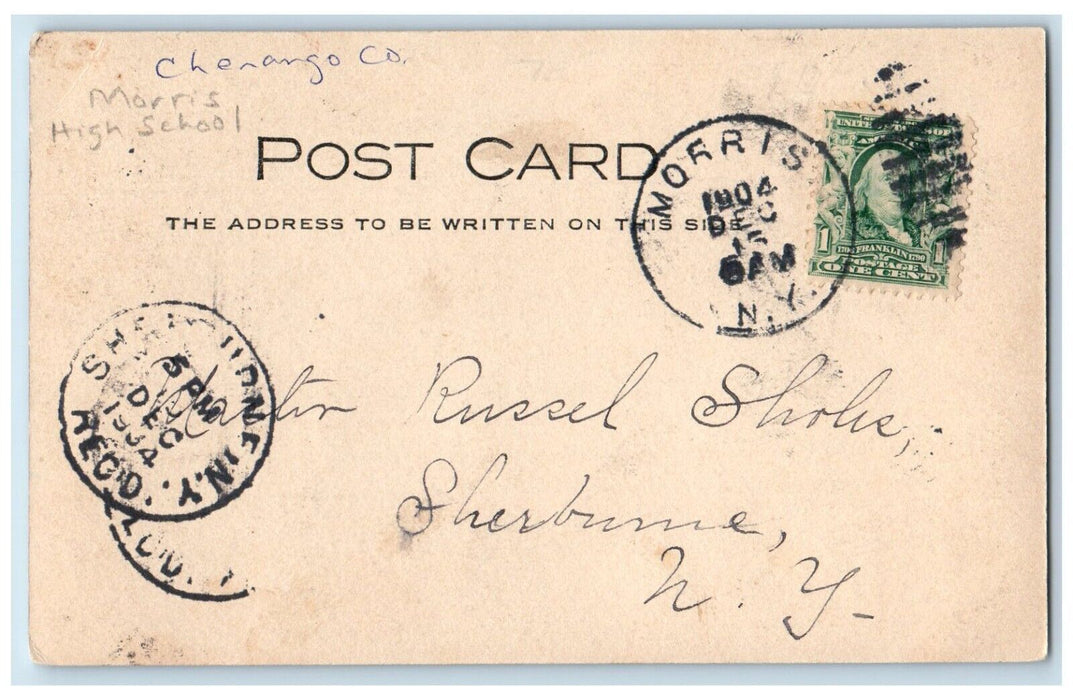 Chenango Co.
Morris
High School
POST CARD
THE ADDRESS TO BE WRITTEN ON THIS SIDE
MORRIS
1904
DEC
15
6 AM
N.Y.
UNITED STATES OF
AMERICA
1 1706 FRANKLIN 1790 1
POSTAGE
ONE CENT
SHERBURNE, N.Y.
5 PM
DEC
1904
REC'D.
REC'D.
Master Russel Sholes,
Sherburne,
N. Y.